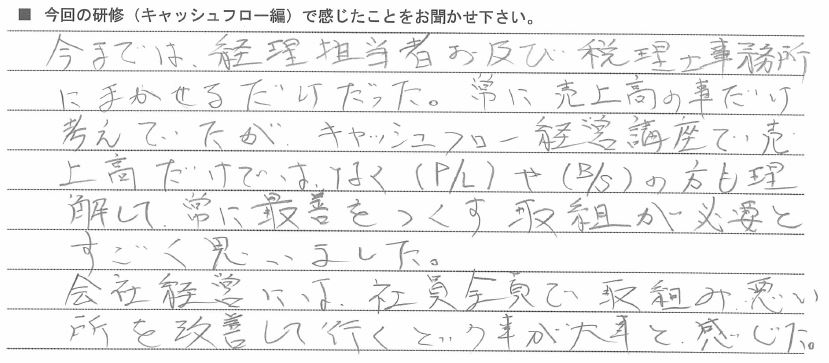 ■ 今回の研修（キャッシュフロー編）で感じたことをお聞かせ下さい。
今までは、経理担当者お及び税理士事務所
にまかせるだけだった。常に売上高の事だけ
考えていたが キャッシュフロー経営講座で売
上高だけではなく（P/L）や（B/S）の方も理
解して、常に最善をつくす取組が必要と
すごく思いました。
会社経営には、社員全員で取組み、悪い
所を改善して行くという事が大事と、感じた。